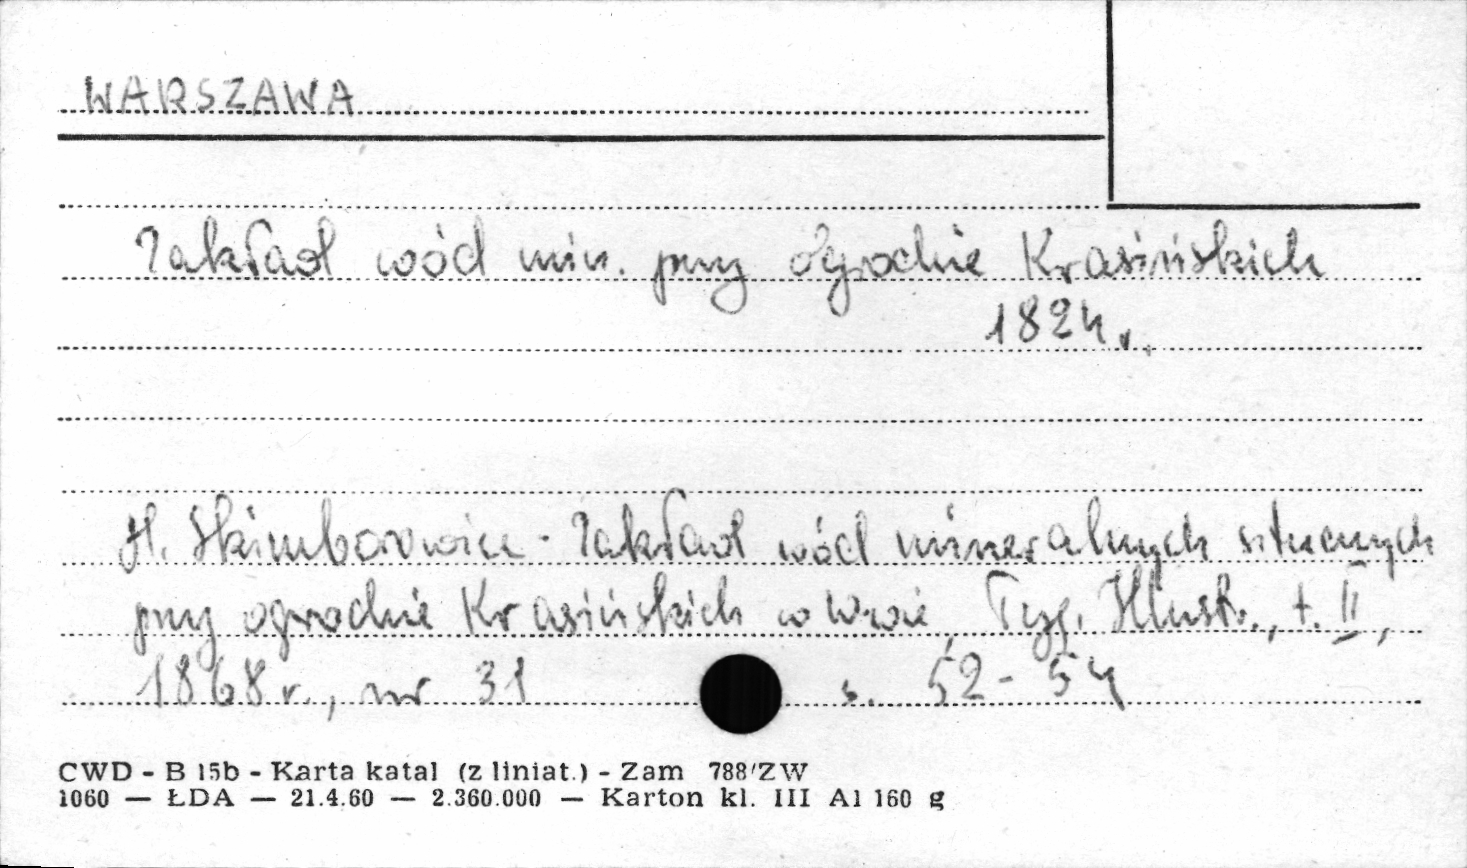 WARSZAWA
Zakład wód min. przy ogrodzie Krasińskich
1824 r.
H. Skimborowicz - Zakład wód mineralnych sztucznych
przy ogrodzie Krasińskich w W-wie, Tyg. Illustr., t. II,
1868 r., nr 31 s. 52-54
CWD - B 15b - Karta katal (z liniat.) - Zam 788/ZW
1060 — ŁDA — 21.4.60 — 2.360.000 — Karton kl. III A1 160 g